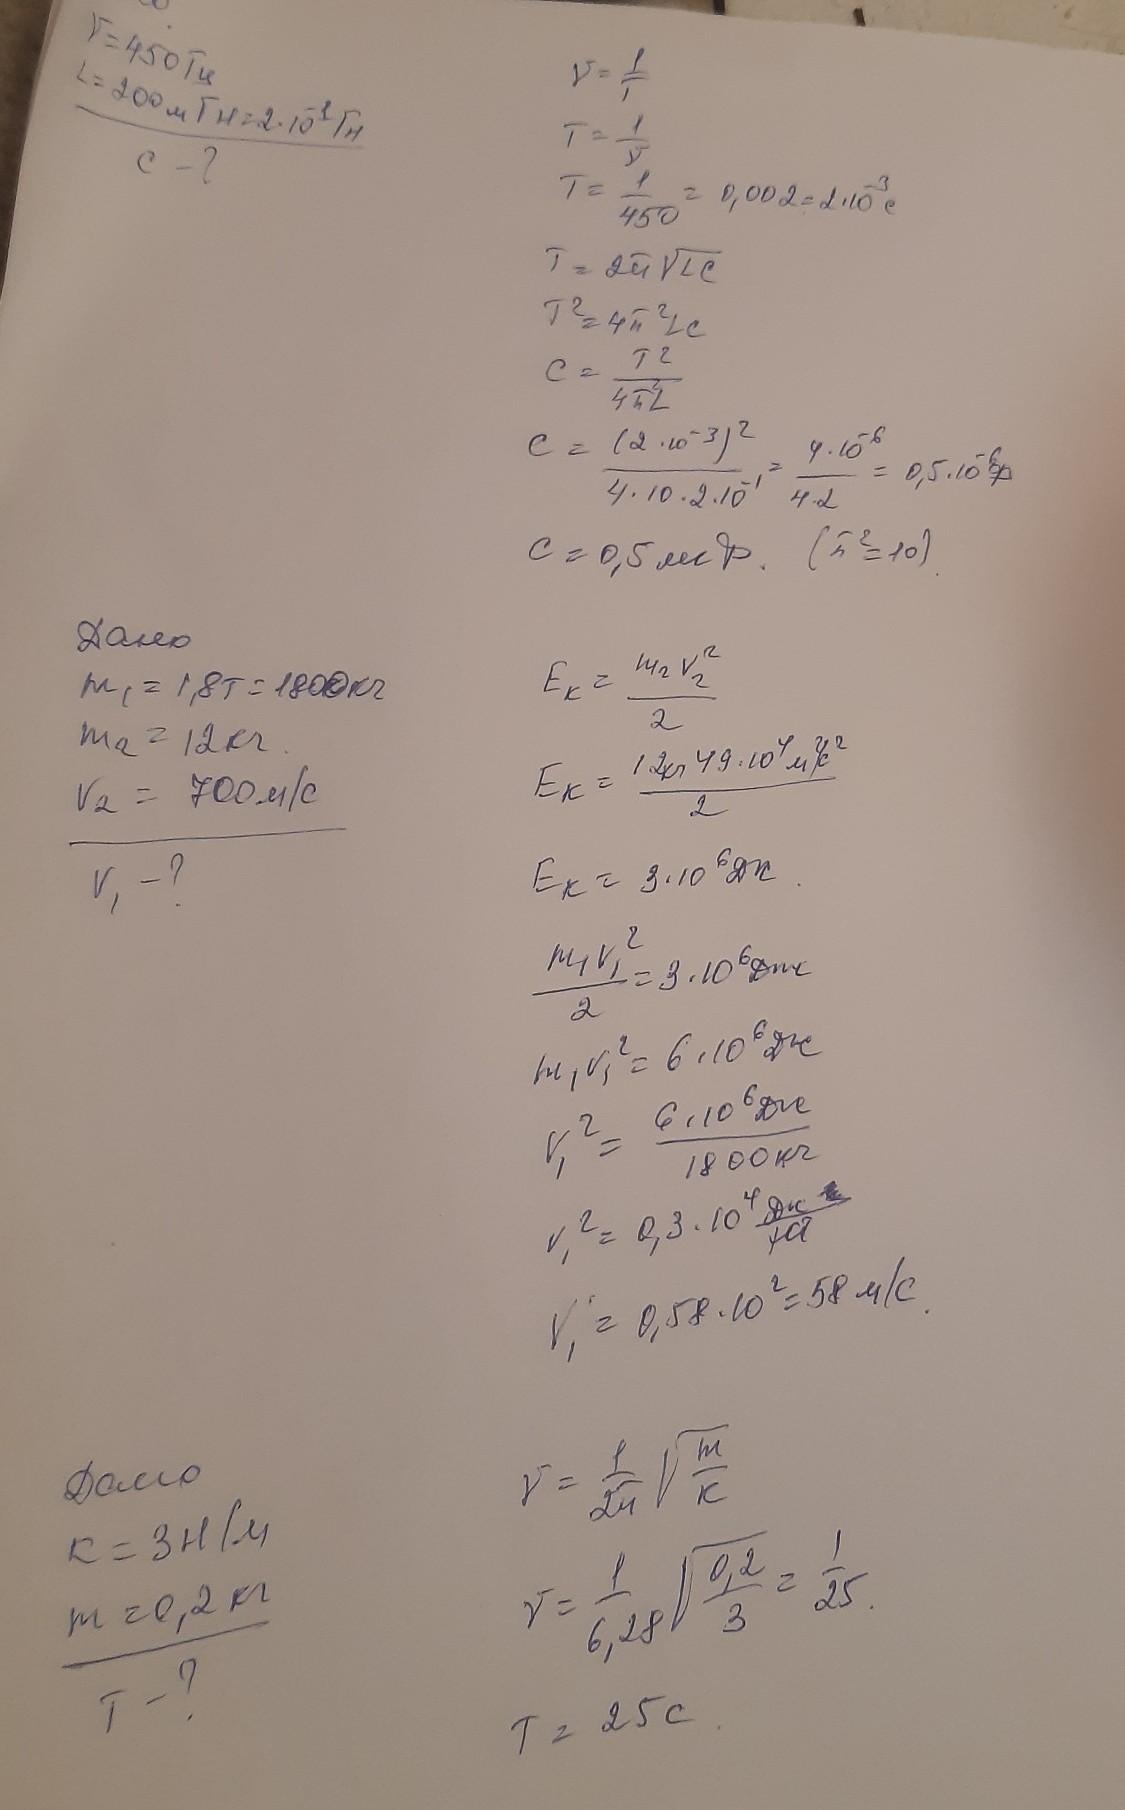 ν = 450 Гц
L = 200 мГн = 2·10⁻¹ Гн
C - ?
ν = 1/T
T = 1/ν
T = 1/450 = 0,002 = 2·10⁻³ с
T = 2π√LC
T² = 4π²LC
C = T²/4π²L
C = (2·10⁻³)²/4·10·2·10⁻¹ = 4·10⁻⁶/4·2 = 0,5·10⁻⁶ф
C = 0,5 мкФ. (π² = 10).
Дано
m₁ = 1,8т = 1800кг
m₂ = 12кг.
V₂ = 700м/с
V₁ - ?
Eк = m₂V₂²/2
Eк = 12кг 49·10⁴м²/с²/2
Eк = 3·10⁶Дж.
m₁V₁²/2 = 3·10⁶Дж
m₁V₁² = 6·10⁶Дж
V₁² = 6·10⁶Дж/1800кг
V₁² = 0,3·10⁴ Дж/кг
V₁ = 0,58·10² = 58 м/с.
Дано
к = 3Н/м
m = 0,2 кг
T - ?
ν = 1/2π √m/к
ν = 1/6,28 √0,2/3 = 1/25.
T = 25 с.